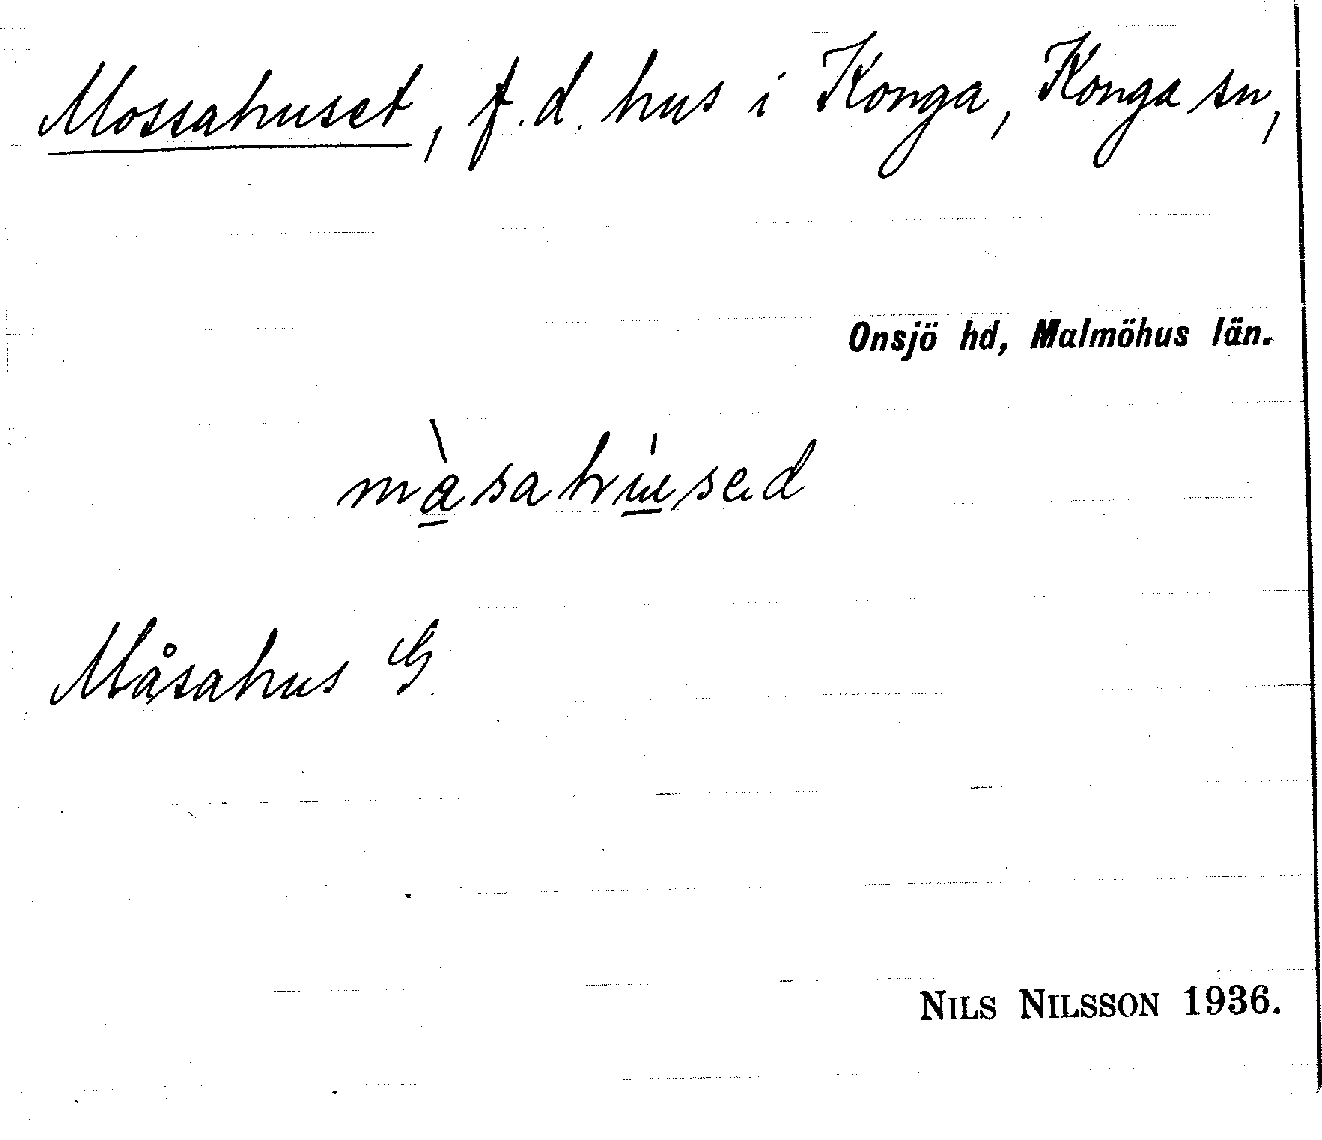 Mossahuset, f.d. hus i Konga, Konga sn,
Onsjö hd, Malmöhus län.
Måsahus G
NILS NILSSON 1936.